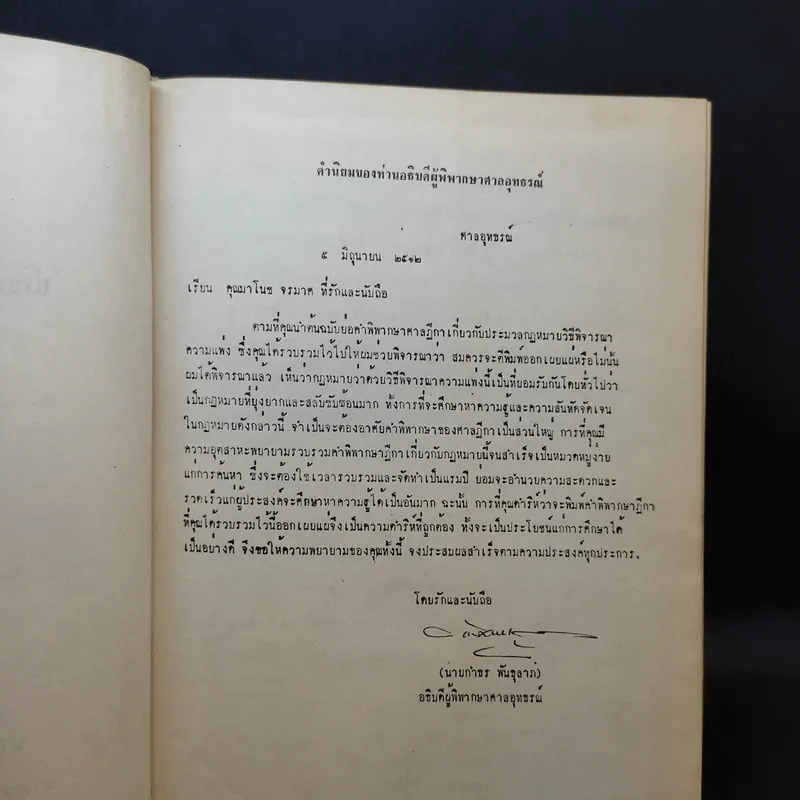 คำนิยมของท่านอธิบดีผู้พิพากษาศาลอุทธรณ์
ศาลอุทธรณ์
๕ มิถุนายน ๒๕๑๒
เรียน คุณมาโนช จรมาศ ที่รักและนับถือ
ตามที่คุณนำต้นฉบับย่อคำพิพากษาศาลฎีกาเกี่ยวกับประมวลกฎหมายวิธีพิจารณา
ความแพ่ง ซึ่งคุณได้รวบรวมไว้ไปให้ผมช่วยพิจารณาว่า สมควรจะตีพิมพ์ออกเผยแผ่หรือไม่นั้น
ผมได้พิจารณาแล้ว เห็นว่ากฎหมายว่าด้วยวิธีพิจารณาความแพ่งนี้เป็นที่ยอมรับกันโดยทั่วไปว่า
เป็นกฎหมายที่ยุ่งยากและสลับซับซ้อนมาก ทั้งการที่จะศึกษาหาความรู้และความสันทัดจัดเจน
ในกฎหมายดังกล่าวนี้ จำเป็นจะต้องอาศัยคำพิพากษาของศาลฎีกาเป็นส่วนใหญ่ การที่คุณมี
ความอุตสาหะพยายามรวบรวมคำพิพากษาฎีกาเกี่ยวกับกฎหมายนี้จนสำเร็จเป็นหมวดหมู่ง่าย
แก่การค้นหา ซึ่งจะต้องใช้เวลารวบรวมและจัดทำเป็นแรมปี ย่อมจะอำนวยความสะดวกและ
รวดเร็วแก่ผู้ประสงค์จะศึกษาหาความรู้ได้เป็นอันมาก ฉะนั้น การที่คุณดำริห์ว่าจะพิมพ์คำพิพากษาฎีกา
ที่คุณได้รวบรวมไว้นี้ออกเผยแผ่จึงเป็นความดำริห์ที่ถูกต้อง ทั้งจะเป็นประโยชน์แก่การศึกษาได้
เป็นอย่างดี จึงขอให้ความพยายามของคุณทั้งนี้ จงประสบผลสำเร็จตามความประสงค์ทุกประการ.
โดยรักและนับถือ
(นายกำธร พันธุลาภ)
อธิบดีผู้พิพากษาศาลอุทธรณ์